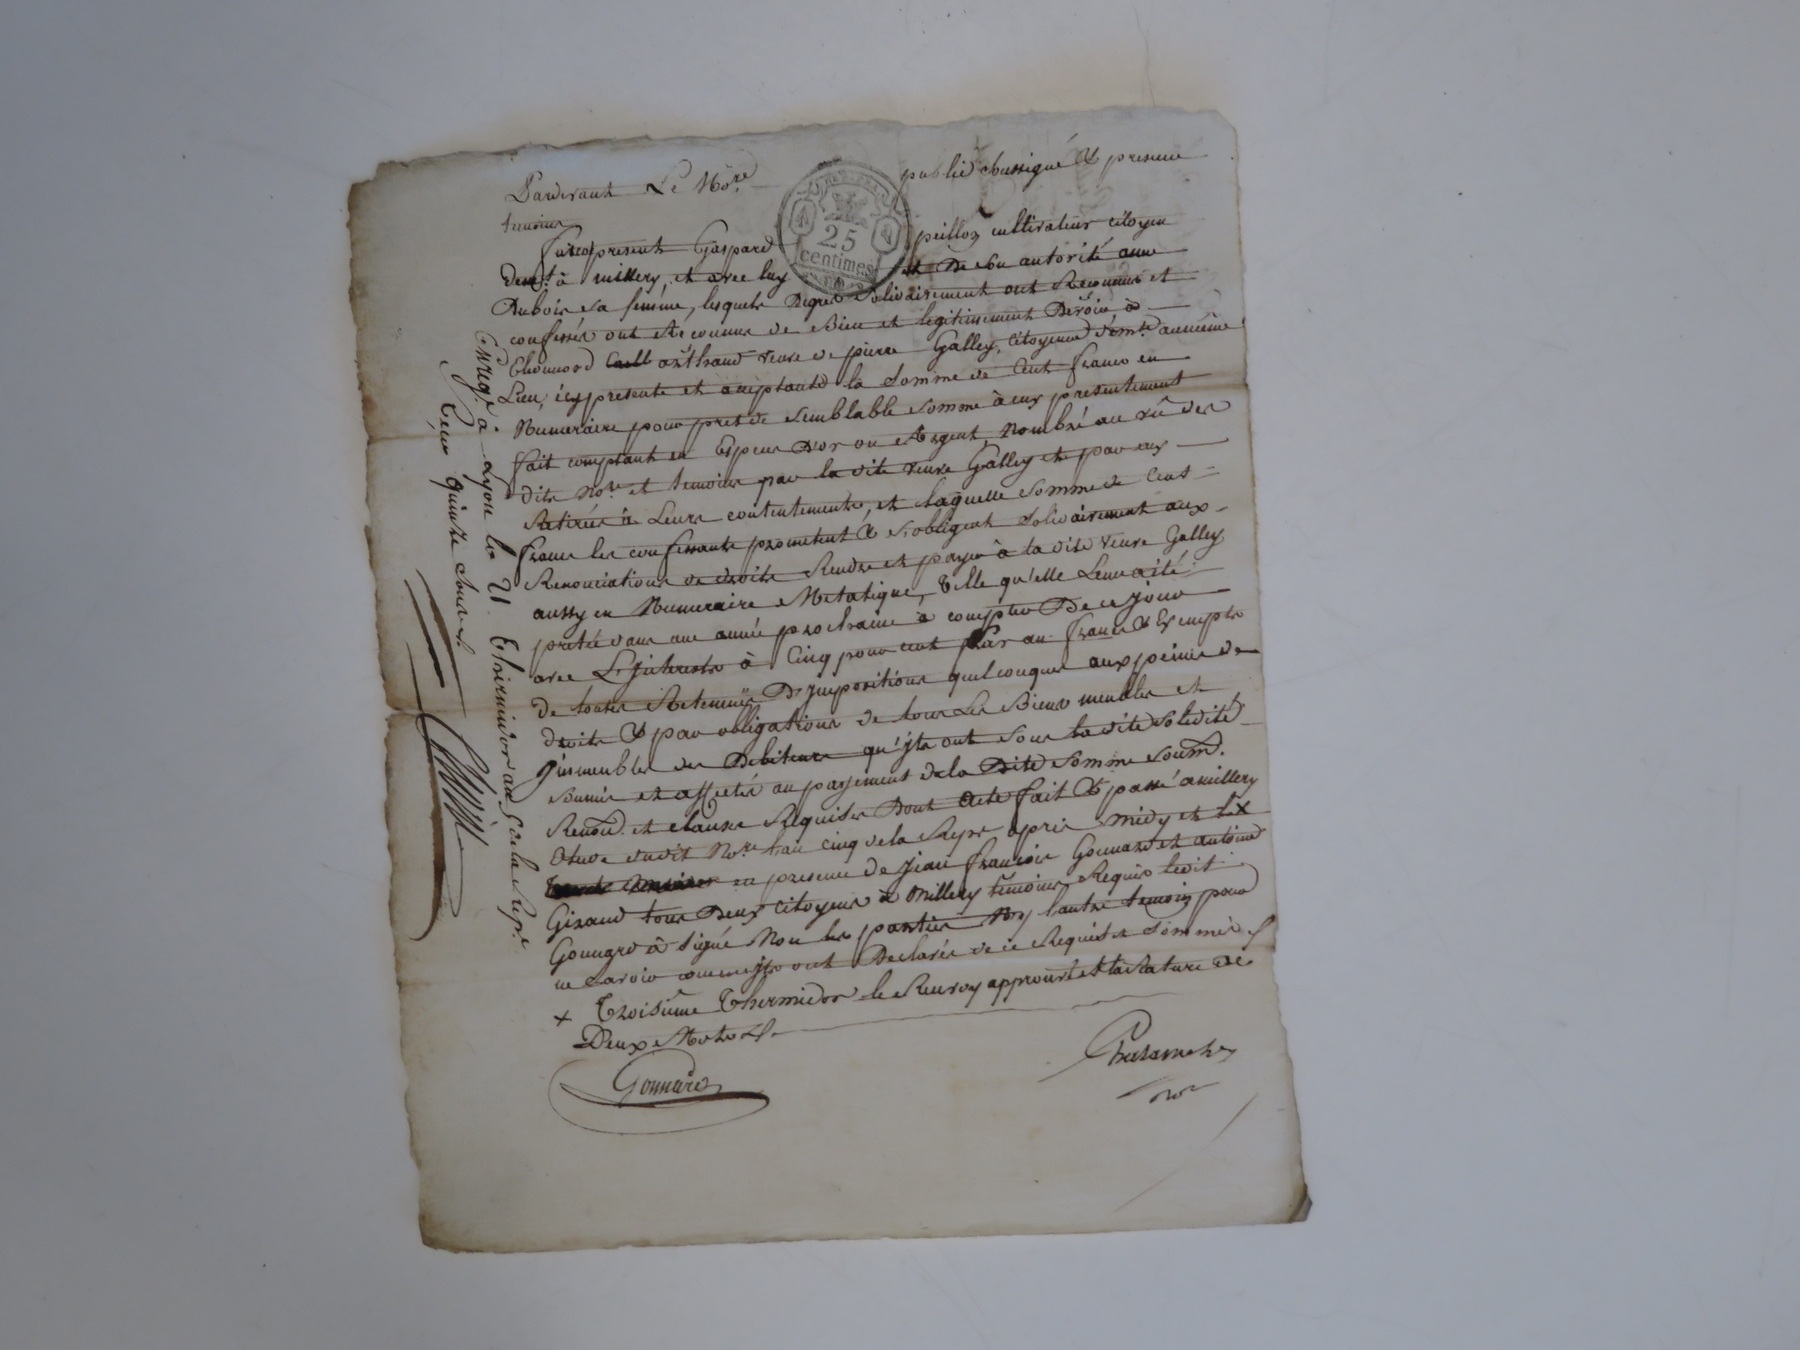 Pardevant Le No.re public soussigné & presence
temoins
fut present Gaspard peillon cultivateur citoyen
dem.t à millery, et avec luy et De son autorité anne
Dubois sa femme, lesquels Degrés Solidairement ont Reconnus et
confessés ont Reconnus de Bien et legitimement Devoir à
arthaud veuve de pierre Galley, Citoyenne dem.te au même
Lieu, icy presente et acceptante la Somme de Cent francs en
Numeraire pour pret de Semblable Somme à eux presentement
fait comptant en Especes D'or ou Argent, Nombré au vû des
dits No.re et temoins par la dite veuve Galley et par eux
Retirés à Leurs contentements, et laquelle Somme de Cent
francs les confessants promettent & s'obligent Solidairement aux
Renonciations de droits Rendre et payer à la dite veuve Galley
aussy en Numeraire Metalique, telle qu'elle Leur a été
pretée dans une année prochaine à compter De ce jour
avec L'jnterets à Cinq pour cent par an francs & Exempts
De toutes Retenües D'jmpositions quelconques aux peines de
droits & par obligations de tous Les Biens meubles et
jmmeubles des Debiteurs qu'jls ont Sous la dite Solidité
Soumis et affectés au payement de la Dite Somme Soum.
Renon.d et clauses Requises Dont Acte fait & passé a millery
Etude dudit No.re l'an cinq de la Repu. après midy et le x
en presence de Jean francois Gonnard et antoine
Giraud tous Deux Citoyens à Millery temoins Requis ledit
Gonnard à Signé Non les parties Ny l'autre temoin pour
ne Savoir comme jls ont Declarés de ce Requis et Sommés
x Troisième Thermidor le Renvoy approuvé et la Rature de
Deux Mots
Gonnard
no.re
Enreg.é à Lyon le Thermidor an 5 de la Rep.e
Reçu quinze Sous